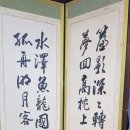 簾影深深轉
夢回高枕上
水澤魚龍國
孤舟明月客